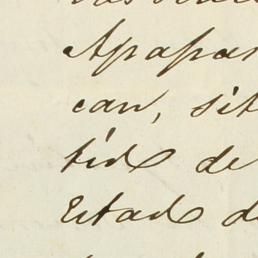 Apapas
can, sit
tido de
Estado d